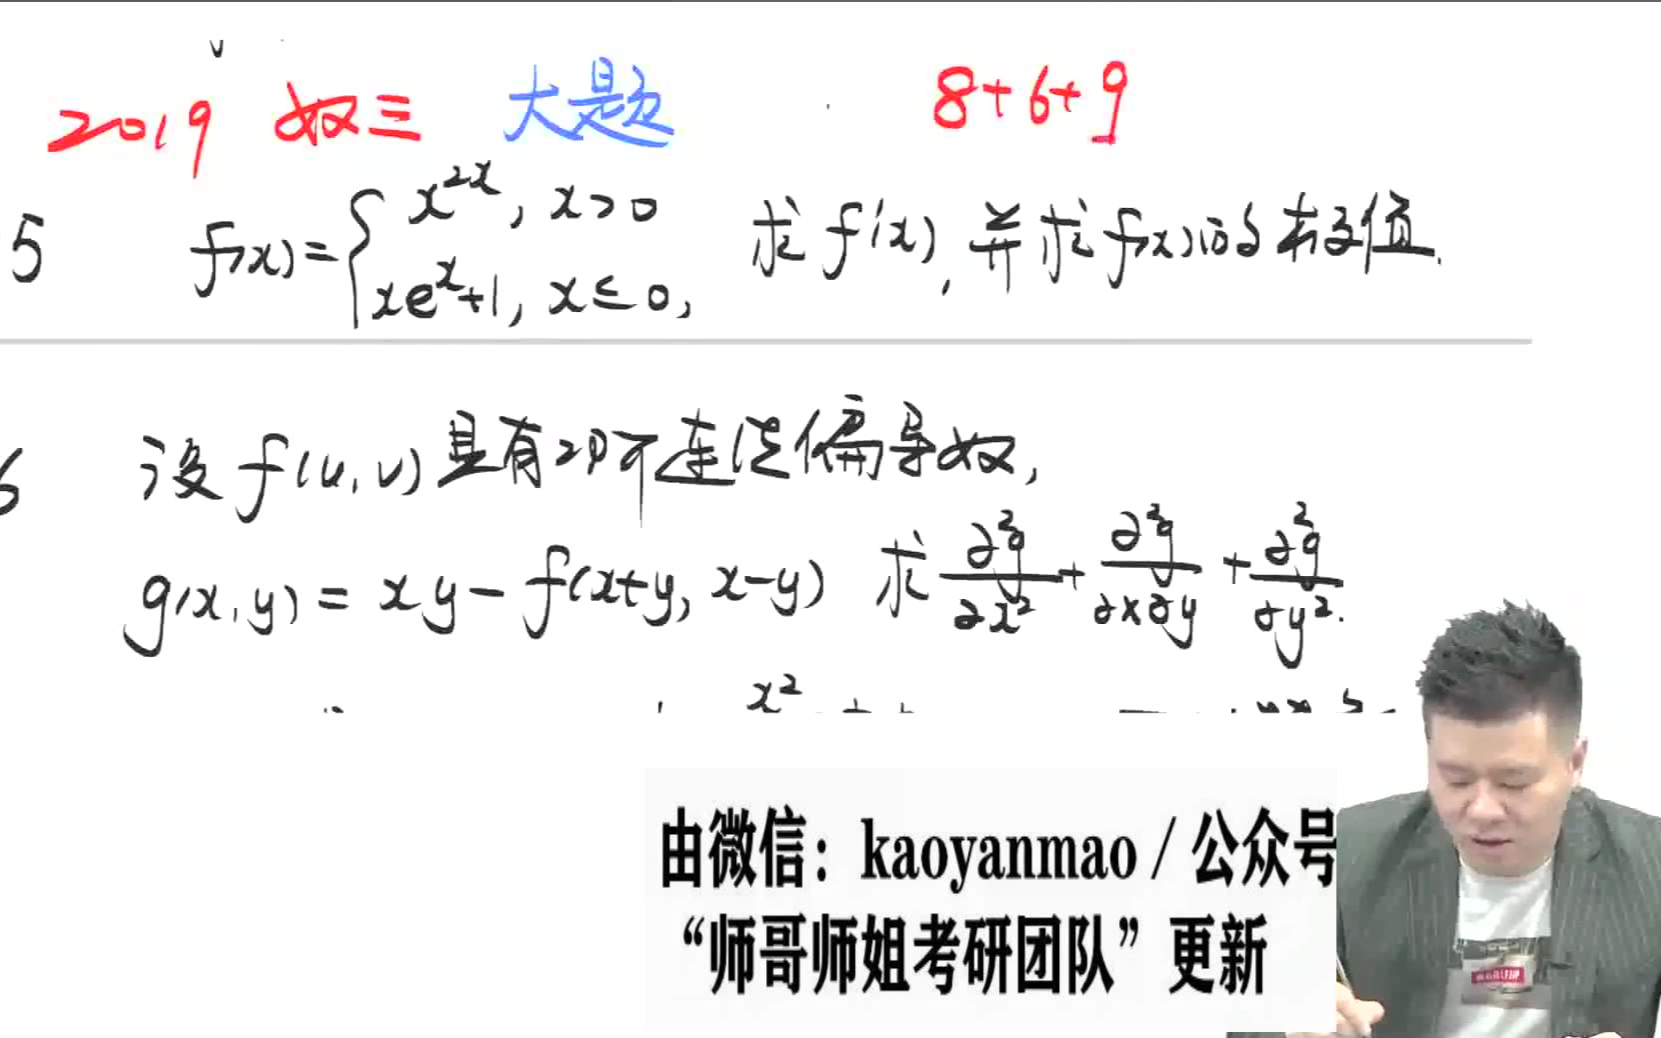 2019 数三 大题 8+6+9
5 f(x)={ x^{2x}, x>0 求f'(x),并求f(x)的极值.
xe^x+1, x≤0,
6 设f(u,v)具有2阶连续偏导数,
g(x,y)=xy-f(x+y, x-y) 求 ∂²g/∂x² + ∂²g/∂x∂y + ∂²g/∂y².
x²
由微信：kaoyanmao / 公众号
“师哥师姐考研团队”更新